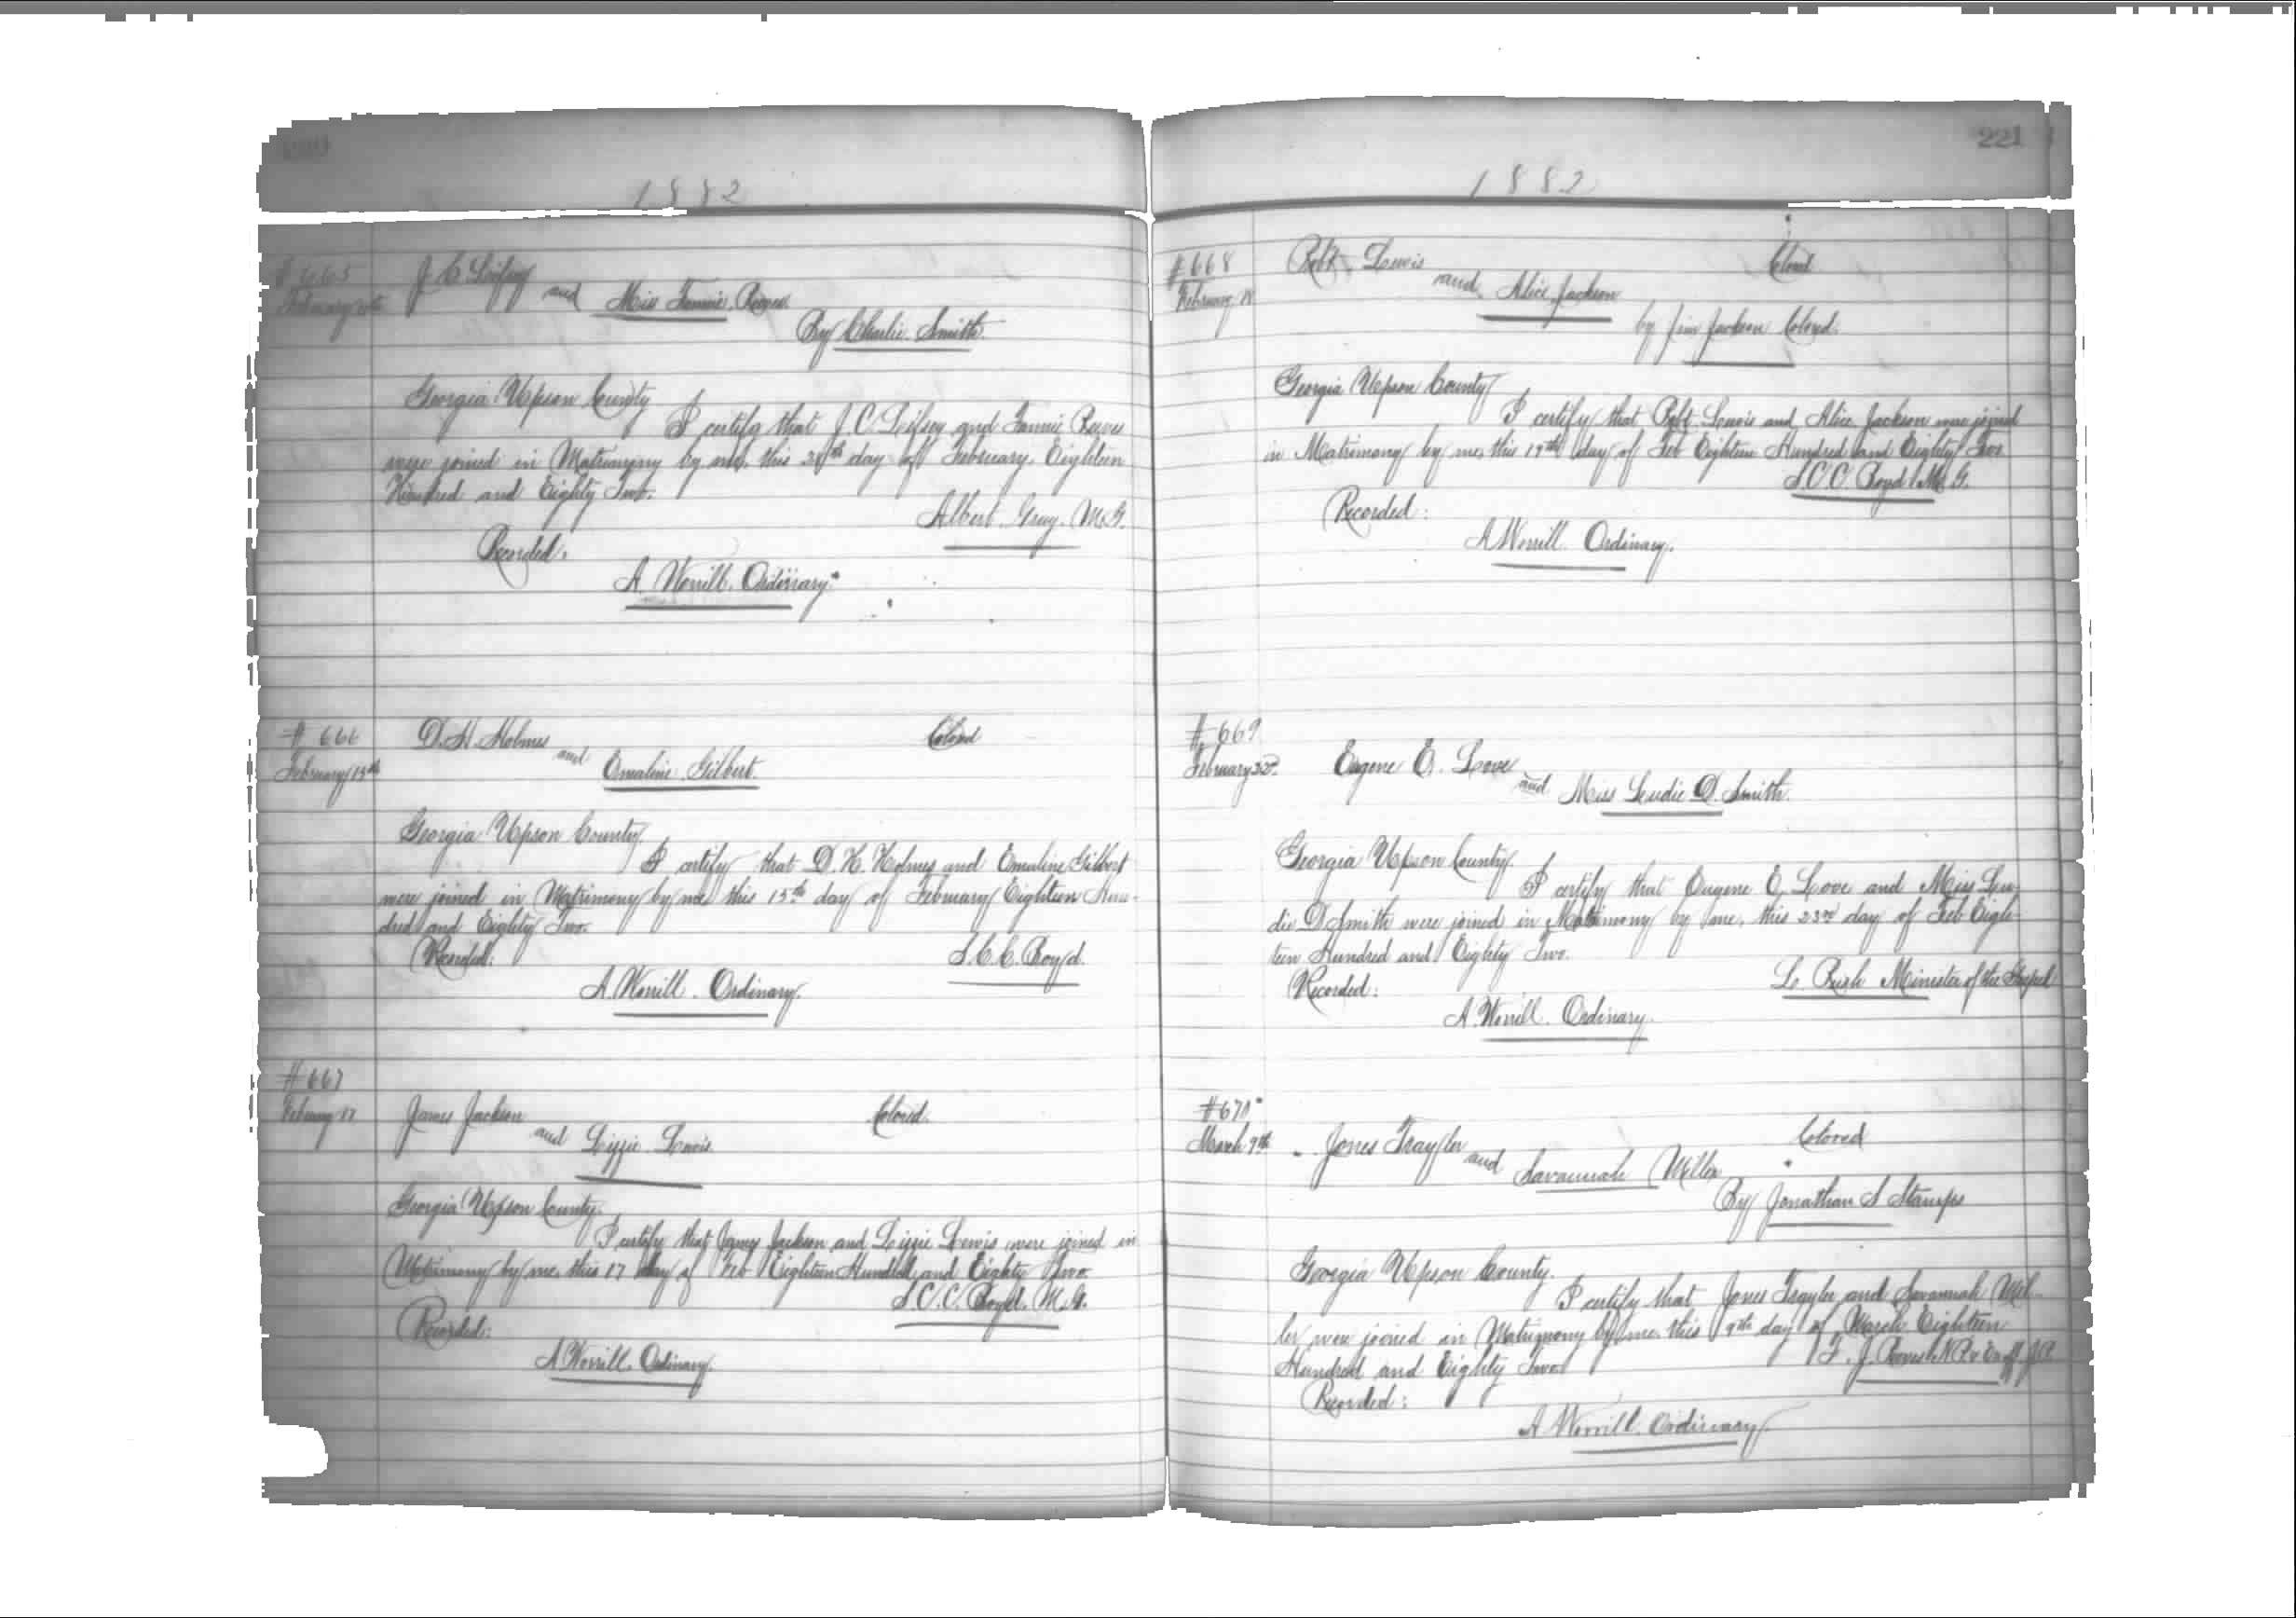 1882
# 665
February
J. C. Lifsey
and Miss Fannie Reeves
By Charlie Smith
Georgia Upson County
I certify that J. C. Lifsey and Fannie Reeves
were joined in Matrimony by me, this day of February, Eighteen
Hundred and Eighty Two.
Albert Gray. M.G.
Recorded.
A. Worrill. Ordinary.
# 666
February 15th
D. H. Holmes
and
Emaline Gilbert
Colored
Georgia Upson County
I certify that D. H. Holmes and Emaline Gilbert
were joined in Matrimony by me this 15th day of February Eighteen Hun-
dred and Eighty Two.
S. C. C. Boyd.
Recorded:
A. Worrill. Ordinary.
# 667
February 17
James Jackson
and Lizzie Lewis
Colored.
Georgia Upson County.
I certify that James Jackson and Lizzie Lewis were joined in
Matrimony by me, this 17 day of Feb Eighteen Hundred and Eighty Two
S. C. C. Boyd. M.G.
Recorded:
A. Worrill. Ordinary.
221
1882
# 668
February
Robt. Lewis
and Alice Jackson
Colored
by Jim Jackson Colored.
Georgia Upson County
I certify that Robt Lewis and Alice Jackson were joined
in Matrimony by me, this 19th day of Feb Eighteen Hundred and Eighty Two
S. C. C. Boyd M.G.
Recorded:
A. Worrill Ordinary.
# 669
February
Eugene E. Love
and Miss Ludie D. Smith.
Georgia Upson County.
I certify that Eugene E. Love and Miss Lu-
die D Smith were joined in Matrimony by me, this 23rd day of Feb Eigh-
teen Hundred and Eighty Two.
L. Rush Minister of the Gospel
Recorded:
A. Worrill. Ordinary.
# 670
March 9th
Jones Traylor
and
Savannah Miller
Colored
By Jonathan S Stamps
Georgia Upson County.
I certify that Jones Traylor and Savannah Mil-
ler were joined in Matrimony by me, this 9th day of March Eighteen
Hundred and Eighty Two
F. J. Reeves N.P. & Ex off J.P.
Recorded:
A Worrill. Ordinary.